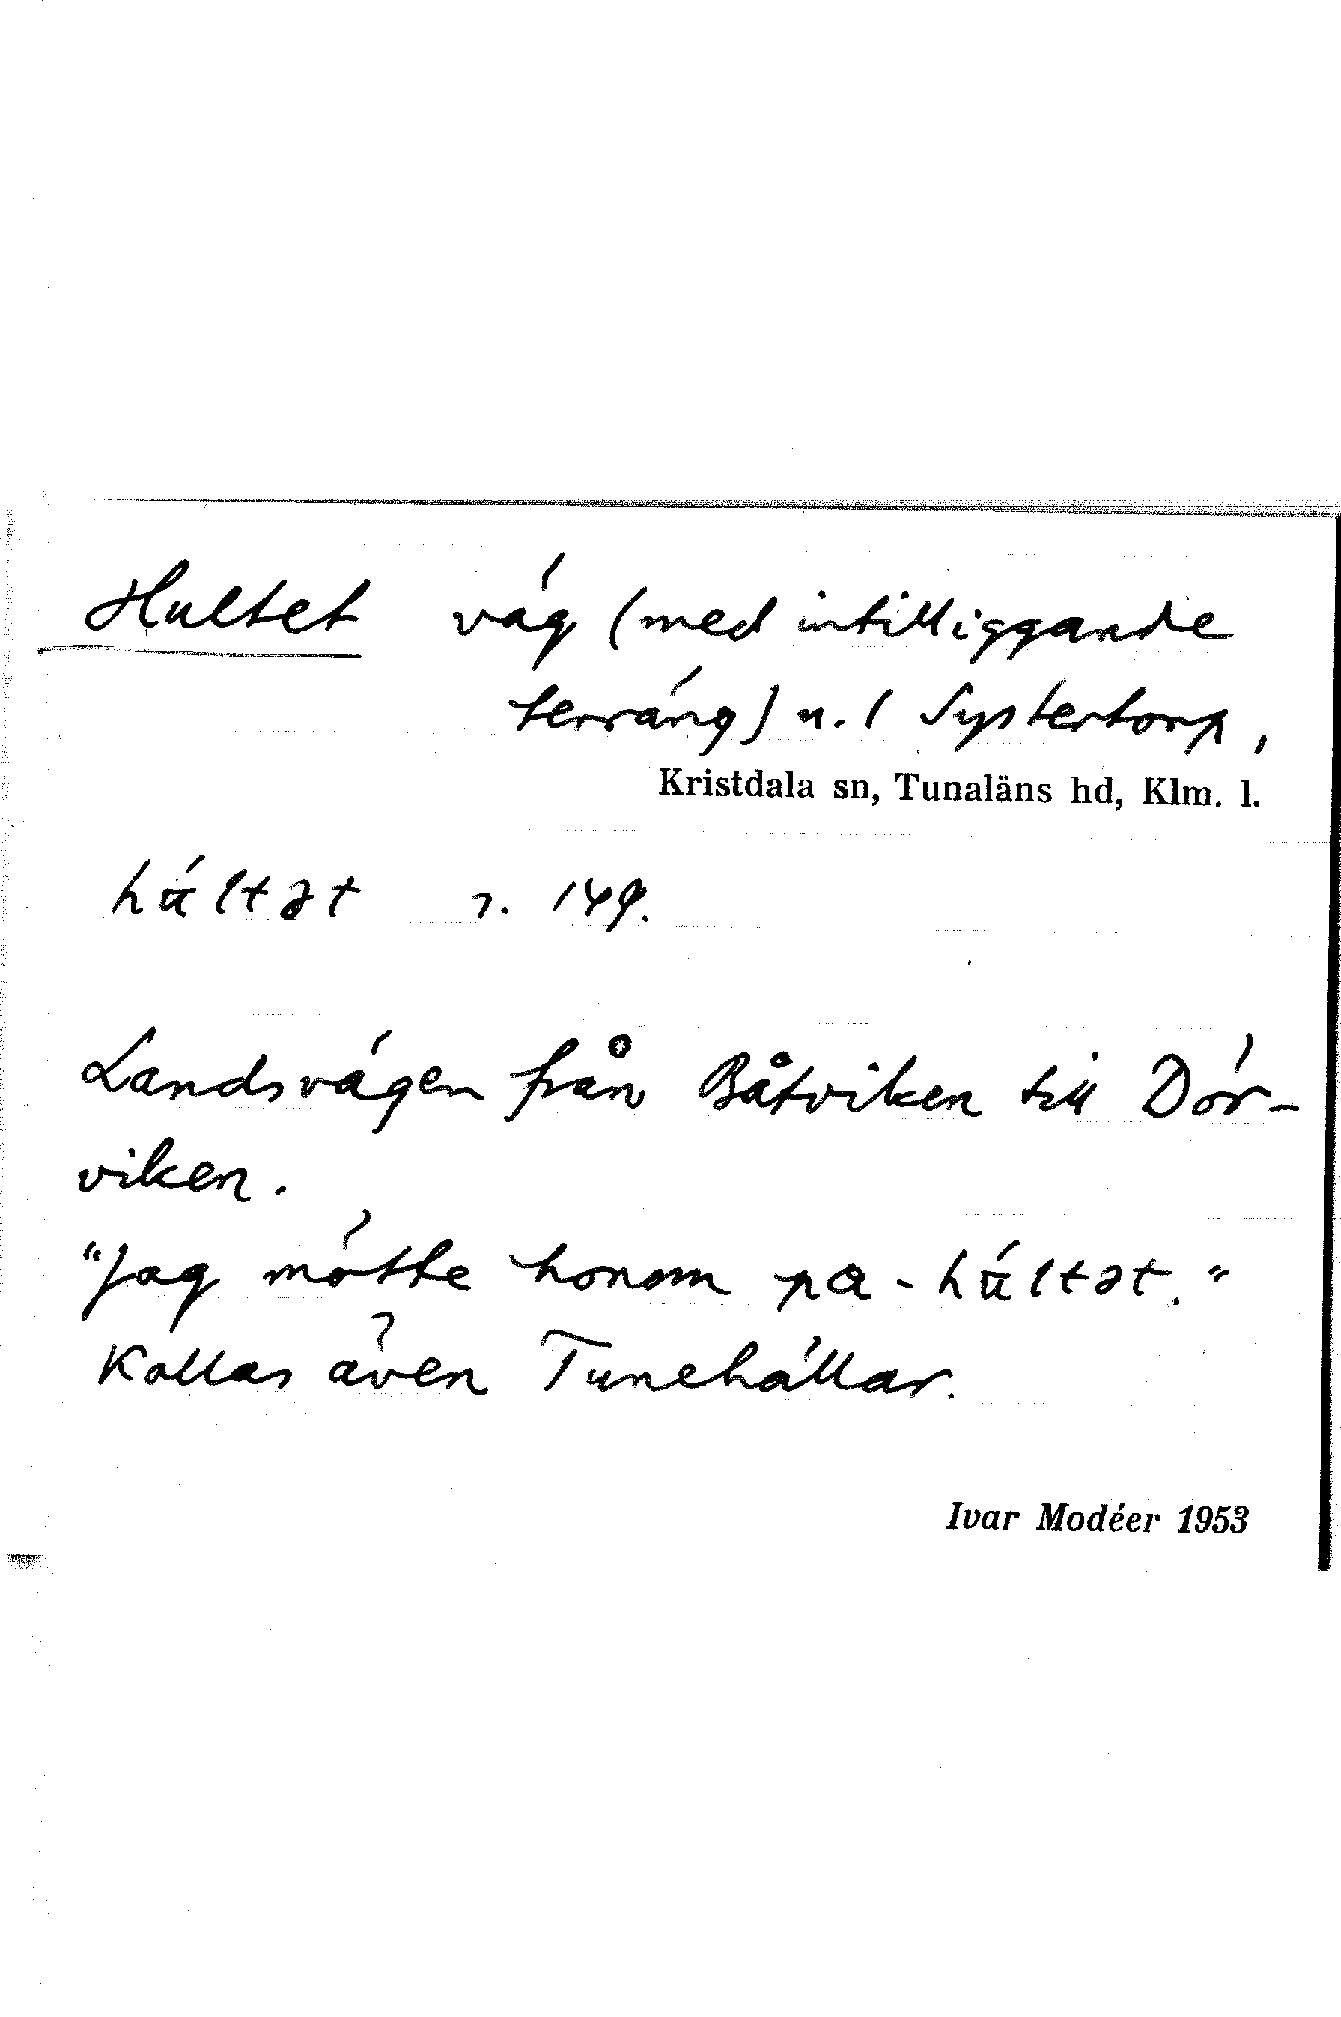 Hultet väg (med intilliggande
terräng) u. l Systertorp,
Kristdala sn, Tunaläns hd, Klm. l.
húltət ɿ. 149.
Landsvägen från Båtviken till Dör-
viken.
"Jag mötte honom pɑ - húltət."
Kallas även Tunehällar.
Ivar Modéer 1953